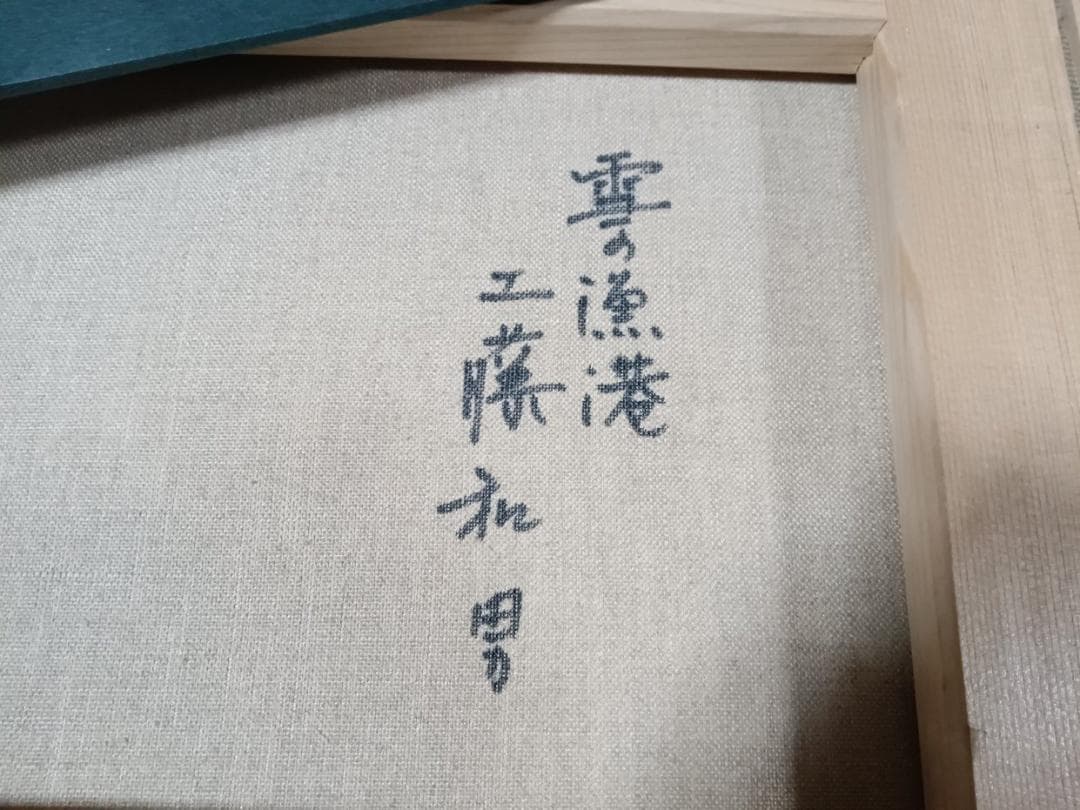 雪の漁港
工藤和男